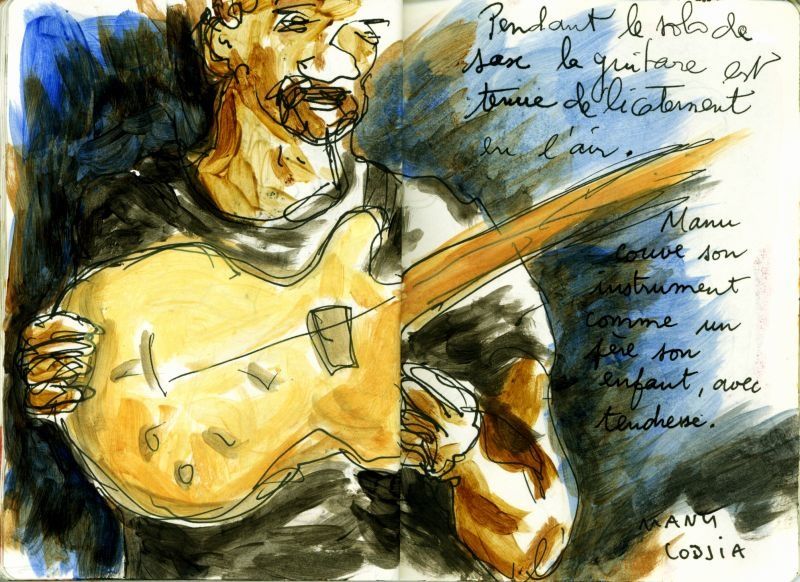 Pendant le solo de
sax la guitare est
tenue delicatement
en l'air.
Manu
couve son
instrument
comme un
père son
enfant, avec
tendresse.
MANU
CODJIA